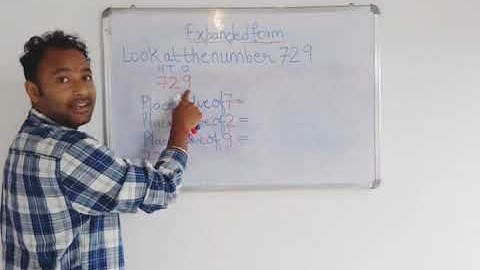 Expanded form
Look at the number 729
H T O
729
Place value of 7 =
Place value of 2 =
Place value of 9 =